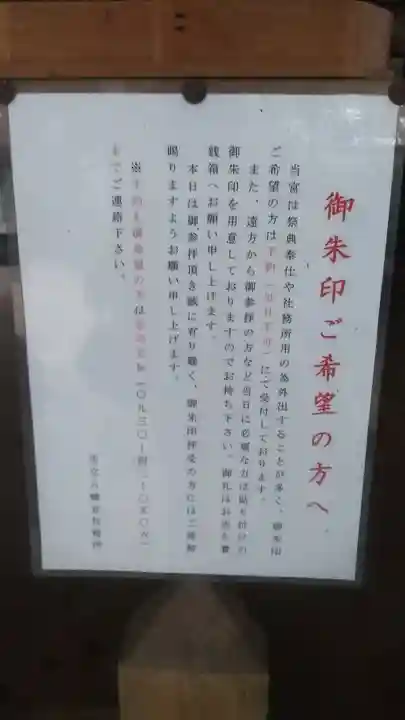 御朱印ご希望の方へ
当宮は祭典奉仕や社務所用の為外出することが多く、御朱印
ご希望の方は予約(当日不可)にて受付しております。
また、遠方から御参拝の方など当日に必要な方は貼り付けの
御朱印を用意しておりますのでお持ち下さい。御礼はお賽
銭箱へお願い申し上げます。
本日は御参拝頂き誠に有り難く、御朱印拝受の方にはご理解
賜りますようお願い申し上げます。
※予約も御希望の方は
までご連絡下さい。
八幡宮社務所